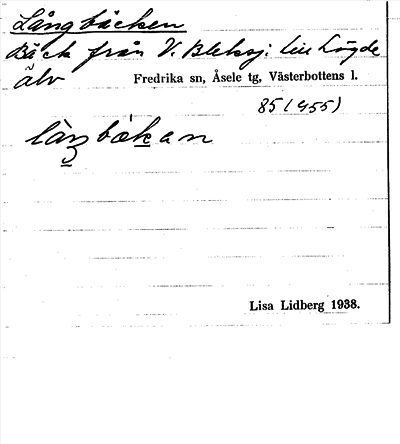 Långbäcken
Bäck från V. Bleksj. till Lögde
älv
Fredrika sn, Åsele tg, Västerbottens l.
85 (455)
Lisa Lidberg 1938.